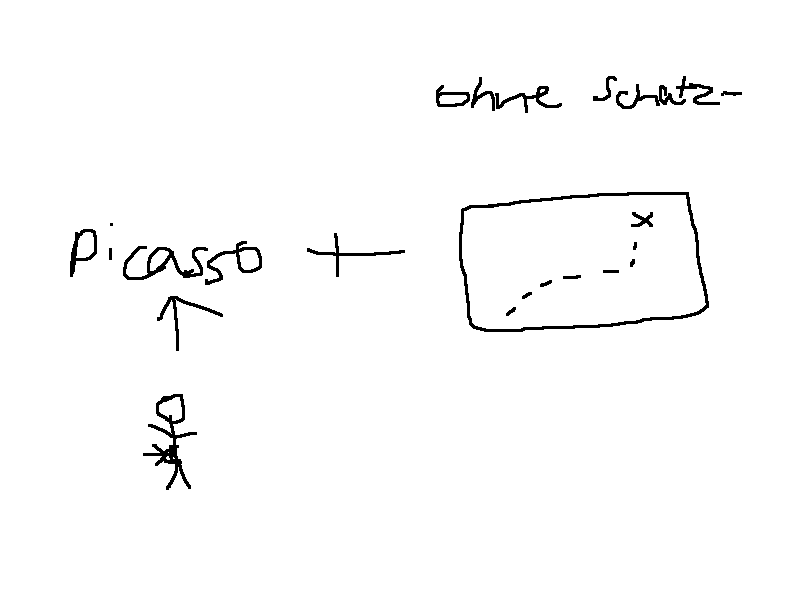 ohne Schatz-
Picasso +
x